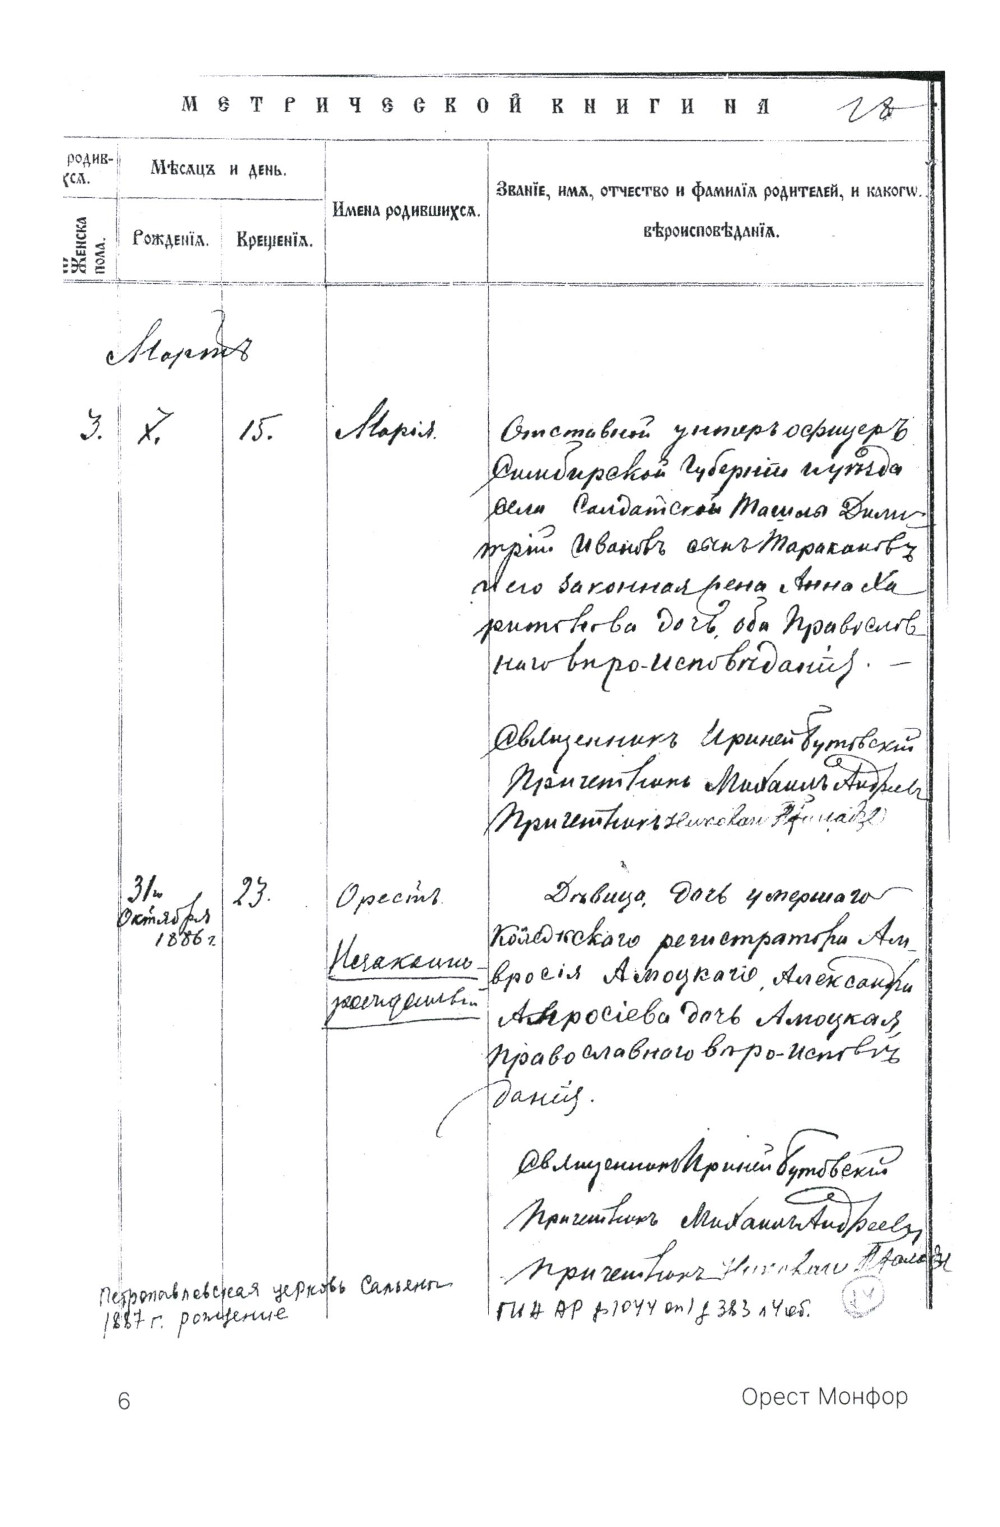 МЕТРИЧЕСКОЙ КНИГИ НА
28
родив-
хсѧ.
Мѣсѧцъ и день.
Имена родившихсѧ.
Званїе, имѧ, отчество и фамилїѧ родителей, и какогѡ
вѣроисповѣданїѧ.
Женска
пола.
Рожденїѧ.
Крещенїѧ.
Мартъ
3.
15.
Марія.
Отставной унтеръ офицеръ
Симбирской Губерніи уѣзда
села Солдатской Ташлы Дими
трій Ивановъ сынъ Таракановъ
и его законная жена Анна Ха
ритонова дочь, оба Православ
наго вѣро-исповѣданія. —
Священникъ Ириней Бутовскій
Причетникъ Михаилъ Андреевъ
Причетникъ Николай
31го
Октября
1886 г.
23.
Орестъ.
Незаконно-
рожденный
Дѣвица, дочь умершаго
Коллежскаго регистратора Ам-
вросія Амоцкаго, Александра
Амвросіева дочь Амоцкая,
Православнаго вѣро-исповѣ
данія.
Священникъ Ириней Бутовскій
Причетникъ Михаилъ Андреевъ
Причетникъ Николай
Петропавловская церковь Сальяны
1887 г. рождение
ГИА АР ф1044 оп1 д 383 л 4 об.
14
6
Орест Монфор